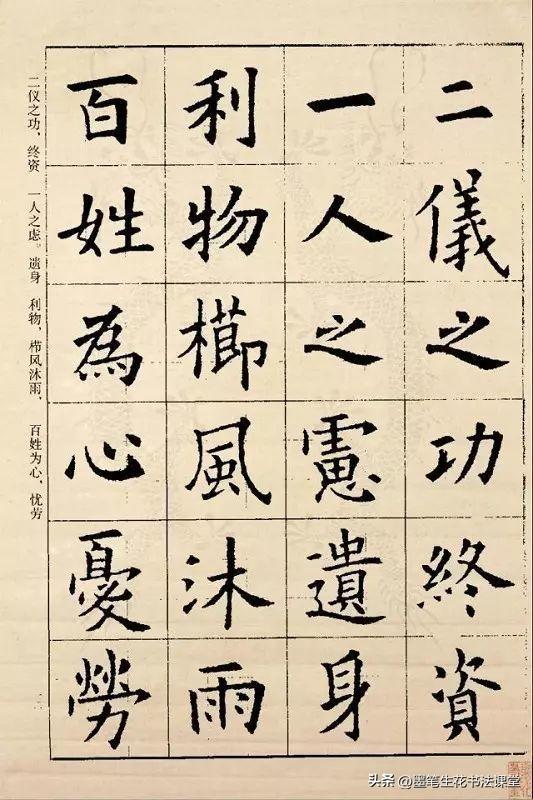 二儀之功終資
一人之慮遺身
利物櫛風沐雨
百姓為心憂勞
二仪之功，终资　一人之虑。遗身　利物，栉风沐雨，　百姓为心，忧劳
头条 @墨笔生花书法课堂